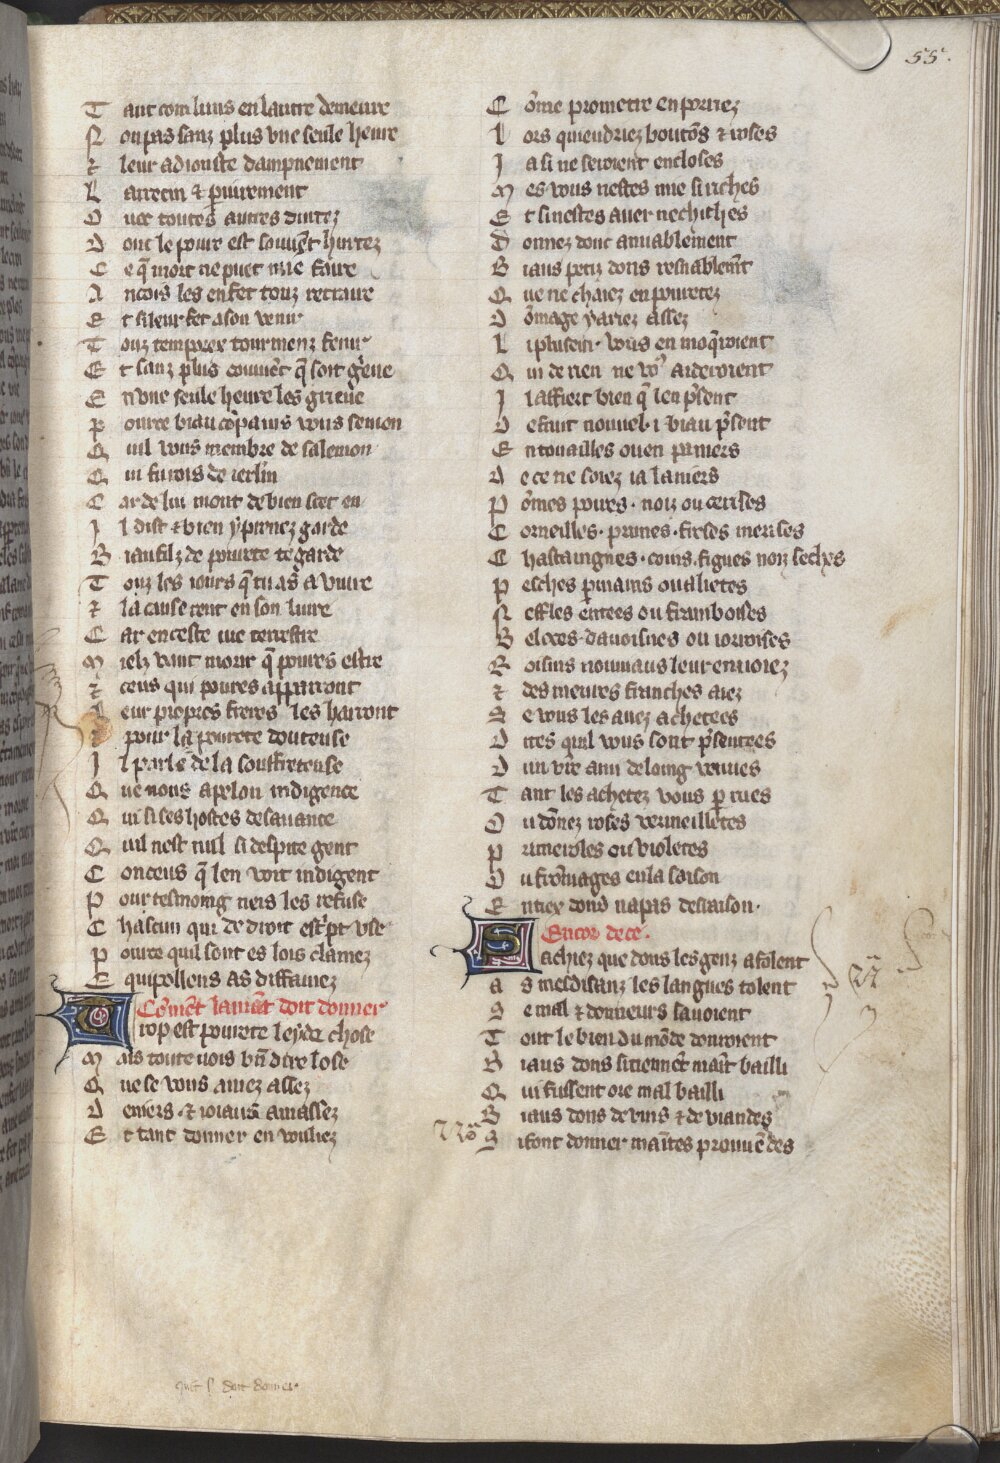 55.
Tant com lairs en lautre demeure
Non pas sanz plus vne seule heure
Et leur adiouste dampnement
Larrecin & puirement
Ou toutes autres durtez
Dont le poure est souuēt hurtez
Ce q̄ mort ne puet mie faire
Ancois les en fet touz retraire
Et si leur fet a son venir
Touz temporex tourmenz fenir
Et sanz plus cōment q̄ soit g̃eue
En vne seule heure les grieue
Pource biau cōpains vous semon
Quil vous membre de salemon
Qui fu rois de ierlm̄
Car de lui mont de bien scet en
Il dist & bien y prenez garde
Biau filz de pourete te garde
Touz les iours q̄ tu as a viure
Et la cause rent en son liure
Car en ceste vie terrestre
Miels vaut morir q̄ poures estre
Et ceus qui poures apparront
Leur propres freres les harront
Et pour la pourete douteuse
Il parle de la souffreteuse
Que nous apelon indigence
Qui si ses hostes desauance
Quil nest nul si despite gent
Con ceus q̄ len voit indigent
Pour tesmoing neis les refuse
Chascun qui de droit escript vse
Pource quil sont es lois clamez
Equipollens as diffamez
Cōmēt lamāt doit donner
Trop est pourete leyde chose
Mais toute uois bn̄ dire lose
Que se vous auiez assez
Deniers & ioiaus amassez
Et tant donner en vouliez
Cōme prometre en porriez
Lors quiendriez boutōs & roses
Ia si ne seroient encloses
Mes vous nestes mie si riches
Et si nestes auer ne chiches
Donnez donc amiablement
Biaus petiz dons resnablemt̄
Que ne chaiez en pouretez
Dōmage y ariez assez
Li pluseur vous en moq̄roient
Qui de rien ne vo9 aideroient
Il affiert bien q̄ len p̄sent
De fruit nouuel i biau p̄sent
En touailles ou en paniers
De ce ne soiez ia laniers
Pōmes poires noiz ou cerises
Corneilles prunes freses merises
Chastaingnes coins figues noiz seches
Pesches parmains ou alietes
Neffles entees ou framboises
Beloces dauoisnes ou iorroises
Roisins nouuiaus leur enuoiez
Et des meures franches aiez
Se vous les auez achetees
Dites quil vous sont p̄sentees
Dun vr̄e ami de loing venues
Tant les achetez vous p rues
Ou dōnez roses vermeilletes
Primeroles ou violetes
Ou fromages en la saison
En tiex dons na pas desraison
Encor de ce.
Sachiez que dons les genz afolent
As mesdisanz les langues tolent
Se mal es donneurs sauoient
Tout le bien du mōde donroient
Biaus dons si tiennēt mait̄ bailli
Qui fussent ore mal bailli
Biaus dons de vins & de viandes
Si font donner maītes prouuēdes